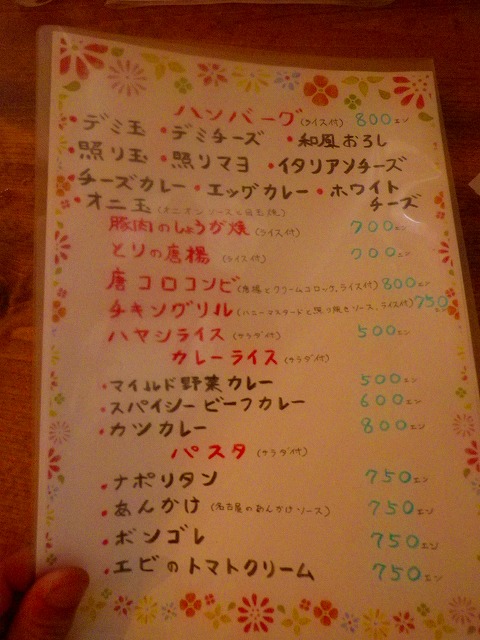 ハンバーグ(ライス付) 800エン
・デミ玉 ・デミチーズ ・和風おろし
・照り玉 ・照りマヨ ・イタリアンチーズ
・チーズカレー ・エッグカレー ・ホワイトチーズ
・オニ玉(オニオンソースと目玉焼)
豚肉のしょうが焼(ライス付) 700エン
とりの唐揚(ライス付) 700エン
唐コロコンビ(唐揚とクリームコロッケ、ライス付) 800エン
チキングリル(ハニーマスタードと照り焼きソース、ライス付) 750エン
ハヤシライス(サラダ付) 500エン
カレーライス(サラダ付)
・マイルド野菜カレー 500エン
・スパイシービーフカレー 600エン
・カツカレー 800エン
パスタ(サラダ付)
・ナポリタン 750エン
・あんかけ(名古屋のあんかけソース) 750エン
・ボンゴレ 750エン
・エビのトマトクリーム 750エン